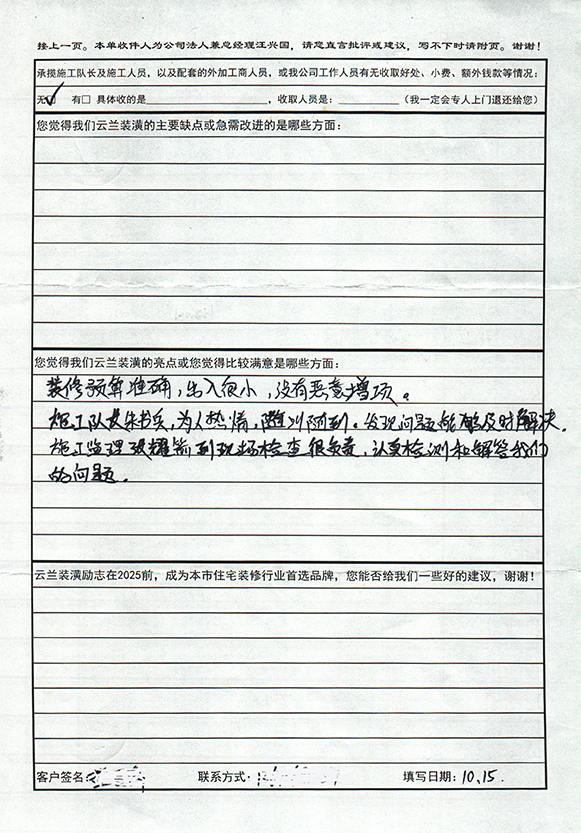 接上一页。本单收件人为公司法人兼总经理汪兴国，请您直言批评或建议，写不下时请附页。谢谢！
承揽施工队长及施工人员，以及配套的外加工商人员，或我公司工作人员有无收取好处、小费、额外钱款等情况：
无☑ 有□ 具体收的是____________________，收取人员是：__________（我一定会专人上门退还给您）
您觉得我们云兰装潢的主要缺点或急需改进的是哪些方面：
您觉得我们云兰装潢的亮点或您觉得比较满意是哪些方面：
装修预算准确，出入很小，没有恶意增项。
施工队长朱书兵，为人热情，随叫随到。发现问题能够及时解决。
施工监理 耀 到现场检查很负责，认真检测和解答我们
的问题。
云兰装潢励志在2025前，成为本市住宅装修行业首选品牌，您能否给我们一些好的建议，谢谢！
客户签名： 联系方式： 填写日期：10.15.